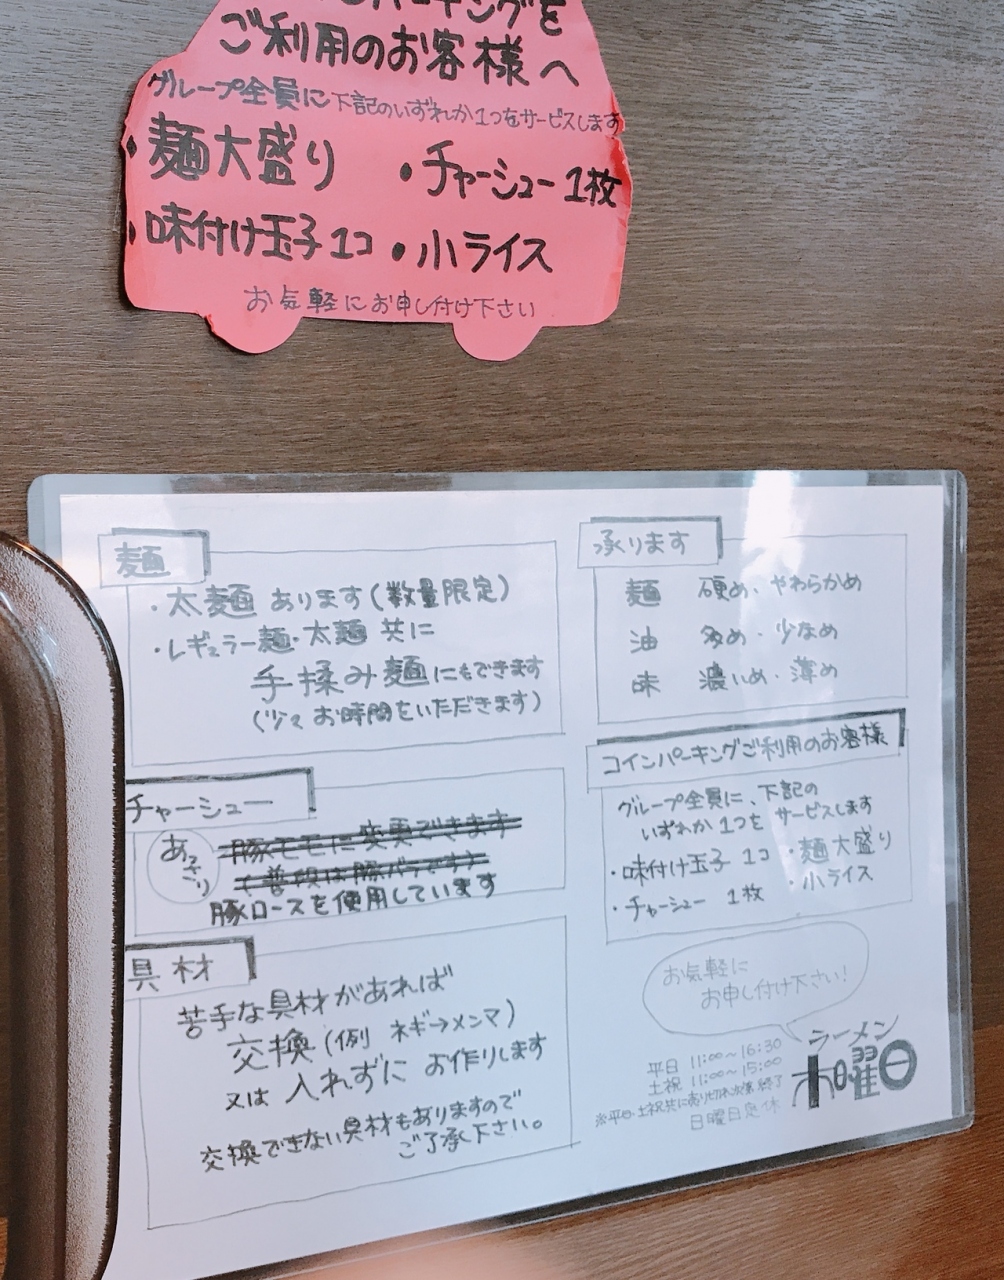 パーキングを
ご利用のお客様へ
グループ全員に下記のいずれか1つをサービスします
・麺大盛り ・チャーシュー1枚
・味付け玉子1コ ・小ライス
お気軽にお申し付け下さい
麺
・太麺あります(数量限定)
・レギュラー麺・太麺 共に
手揉み麺にもできます
(少々お時間をいただきます)
チャーシュー
あっさり
豚モモに変更できます
(普段は豚バラです)
豚ロースを使用しています
具材
苦手な具材があれば
交換(例 ネギ→メンマ)
又は 入れずに お作りします
交換できない具材もありますので
ご了承下さい。
承ります
麺 硬め・やわらかめ
油 多め・少なめ
味 濃いめ・薄め
コインパーキングご利用のお客様
グループ全員に、下記の
いずれか1つを サービスします
・味付け玉子 1コ ・麺大盛り
・チャーシュー 1枚 ・小ライス
お気軽に
お申し付け下さい!
ラーメン
木曜日
平日 11:00~16:30
土祝 11:00~15:00
※平日・土祝共に売り切れ次第終了
日曜日定休